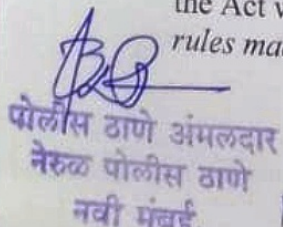 the Act
rules ma
पोलीस ठाणे अंमलदार
नेरुळ पोलीस ठाणे
नवी मुंबई